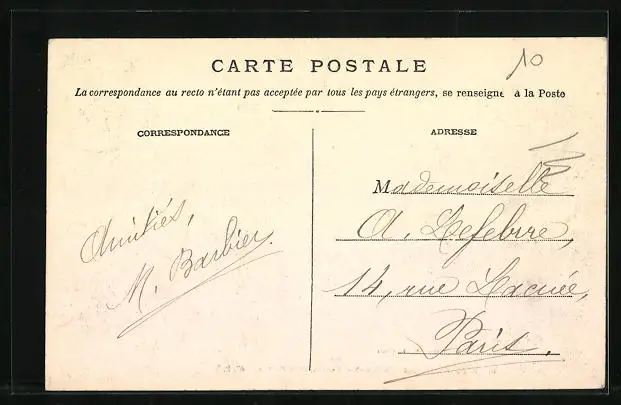 CARTE POSTALE
10
La correspondance au recto n'étant pas acceptée par tous les pays étrangers, se renseigne à la Poste
CORRESPONDANCE
Amitiés,
M. Barbier.
ADRESSE
Mademoiselle
A. Lefebvre,
14, rue Lacuée,
Paris.